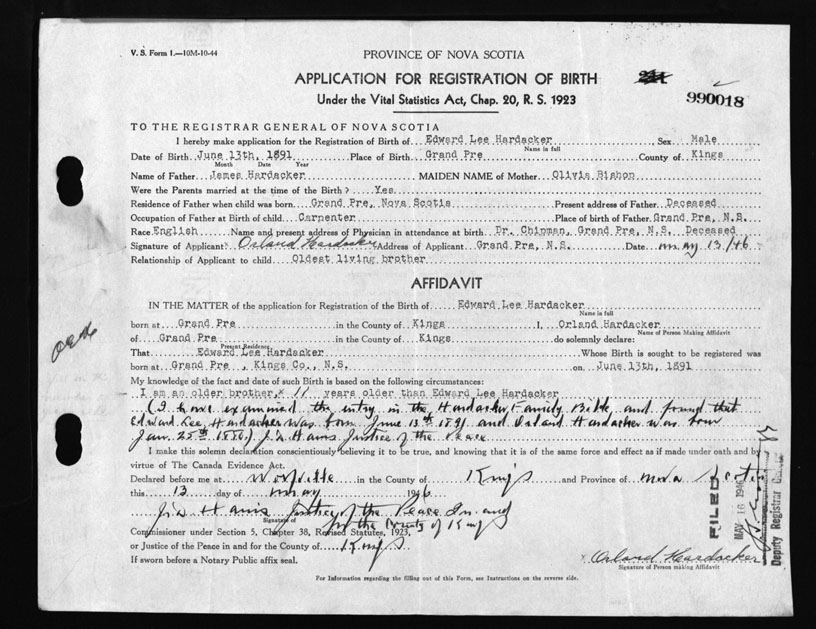 V. S. Form 1.—10M-10-44
PROVINCE OF NOVA SCOTIA
APPLICATION FOR REGISTRATION OF BIRTH
Under the Vital Statistics Act, Chap. 20, R. S. 1923
990018
TO THE REGISTRAR GENERAL OF NOVA SCOTIA
I hereby make application for the Registration of Birth of Edward Lee Hardacker Sex Male
Name in full
Date of Birth June 13th, 1891 Place of Birth Grand Pre County of Kings
Month Date Year
Name of Father James Hardacker MAIDEN NAME of Mother Olivia Bishop
Were the Parents married at the time of the Birth? Yes
Residence of Father when child was born Grand Pre, Nova Scotia Present address of Father Deceased
Occupation of Father at Birth of child Carpenter Place of birth of Father Grand Pre, N.S.
Race English Name and present address of Physician in attendance at birth Dr. Chipman, Grand Pre, N.S. Deceased
Signature of Applicant Orland Hardacker Address of Applicant Grand Pre, N.S. Date May 13/46
Relationship of Applicant to child Oldest living brother
AFFIDAVIT
IN THE MATTER of the application for Registration of the Birth of Edward Lee Hardacker
Name in full
born at Grand Pre in the County of Kings I, Orland Hardacker
Name of Person Making Affidavit
of Grand Pre in the County of Kings do solemnly declare:
Present Residence
That Edward Lee Hardacker Whose Birth is sought to be registered was
born at Grand Pre , Kings Co., N.S. on June 13th, 1891
My knowledge of the fact and date of such Birth is based on the following circumstances:
I am an older brother, 11 years older than Edward Lee Hardacker
(I have examined the entry in the Hardacker Family Bible, and found that
Edward Lee Hardacker was born June 13th 1891 and Orland Hardacker was born
Jan. 25th 1880) Justice of the Peace
I make this solemn declaration conscientiously believing it to be true, and knowing that it is of the same force and effect as if made under oath and by
virtue of The Canada Evidence Act.
Declared before me at Wolfville in the County of Kings and Province of Nova Scotia
this 13 day of May 1946
Justice of the Peace In and
Signature of
for the County of Kings
Commissioner under Section 5, Chapter 38, Revised Statutes, 1923,
or Justice of the Peace in and for the County of Kings
If sworn before a Notary Public affix seal.
Orland Hardacker
Signature of Person making Affidavit
FILED
MAY 16 1946
Deputy Registrar
For Information regarding the filling out of this Form, see Instructions on the reverse side.